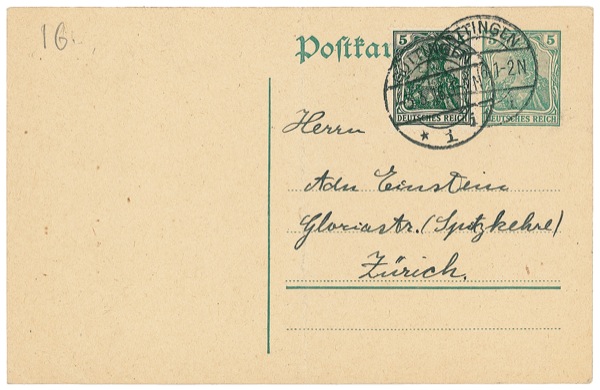 16.
Postkar
5
5
DEUTSCHES REICH
DEUTSCHES REICH
GÖTTINGEN
TINGEN
1-2N
* 1
Herrn
Adn Einstein
Gloriastr. (Spitzkehre)
Zürich.